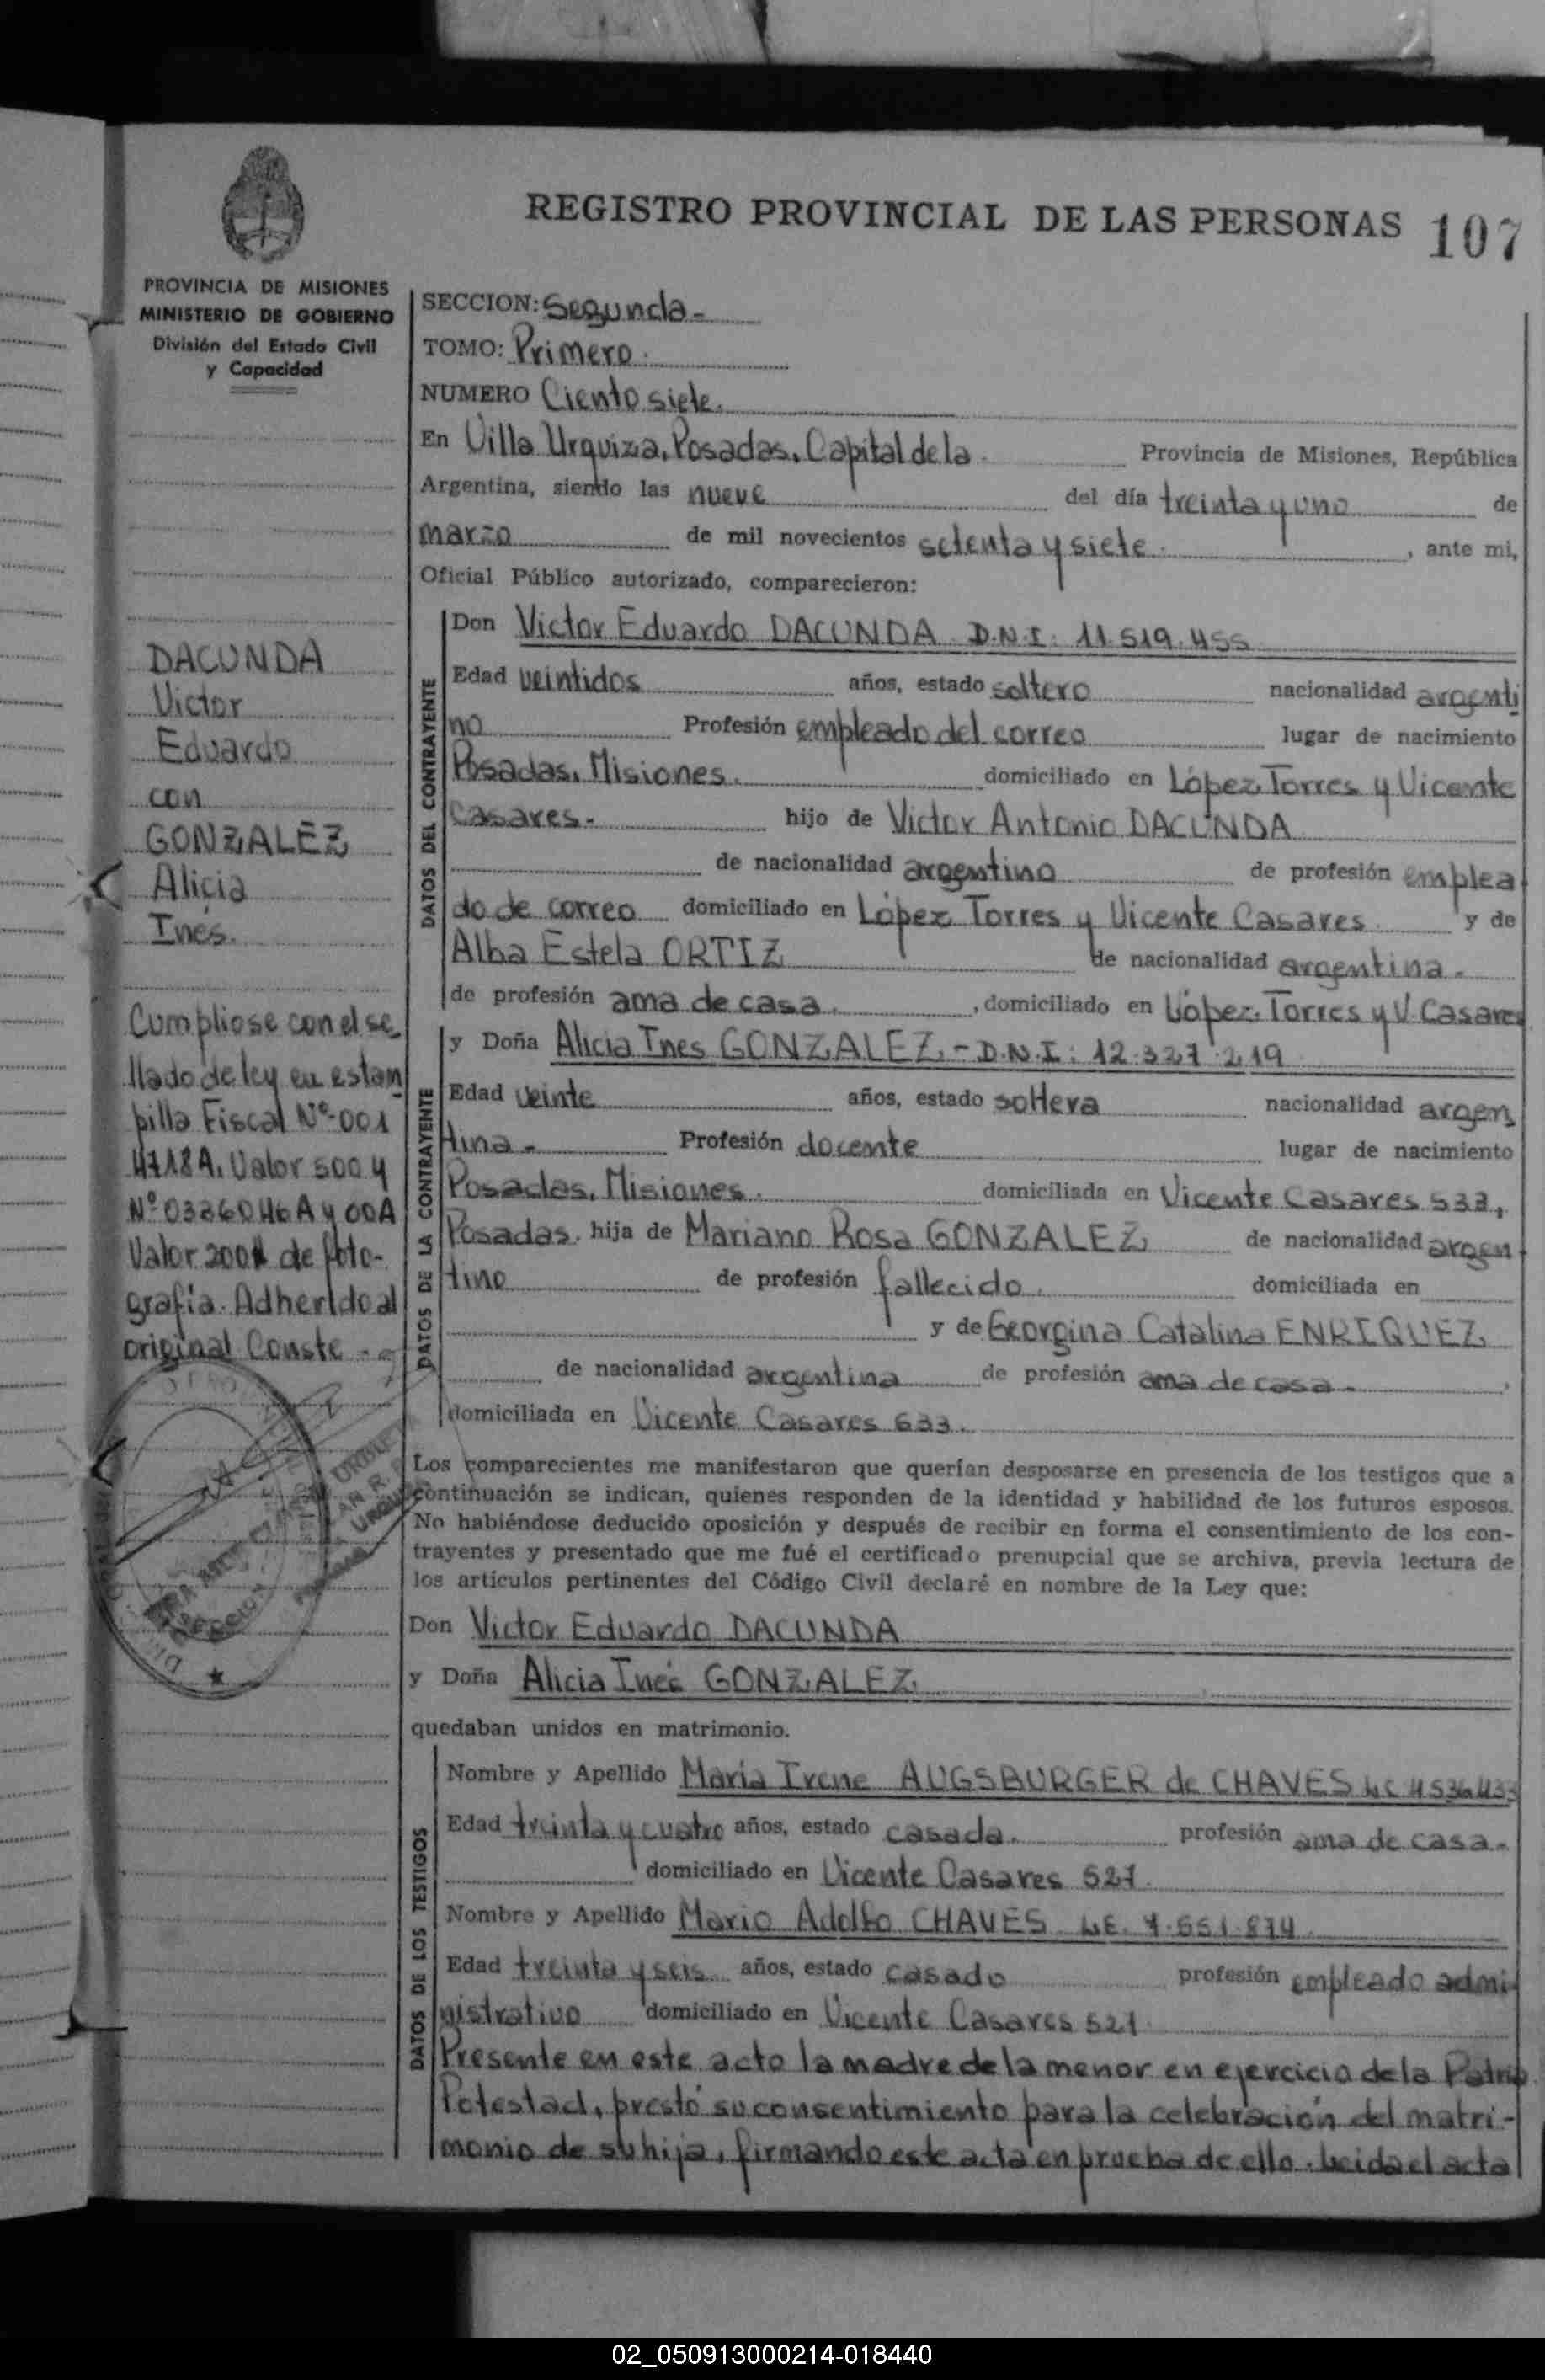 REGISTRO PROVINCIAL DE LAS PERSONAS 107
PROVINCIA DE MISIONES
MINISTERIO DE GOBIERNO
División del Estado Civil
y Capacidad
DACUNDA
Victor
Eduardo
con
GONZALEZ
Alicia
Inés.
Cumpliose con el se
llado de ley en estam
pilla Fiscal Nº-001
4718A, Valor 500 y
Nº 0326046A y 00A
Valor 200 de foto-
grafía. Adherido al
original Conste.-
SECCION: Segunda-
TOMO: Primero.
NUMERO Ciento siete.
En Villa Urquiza, Posadas, Capital de la Provincia de Misiones, República
Argentina, siendo las nueve del día treinta y uno de
marzo de mil novecientos setenta y siete. , ante mi,
Oficial Público autorizado, comparecieron:
DATOS DEL CONTRAYENTE
Don Victor Eduardo DACUNDA D.N.I: 11.519.455
Edad veintidos años, estado soltero nacionalidad argenti
no Profesión empleado del correo lugar de nacimiento
Posadas, Misiones. domiciliado en López Torres y Vicente
Casares.- hijo de Victor Antonio DACUNDA
de nacionalidad argentino de profesión emplea
do de correo domiciliado en López Torres y Vicente Casares y de
Alba Estela ORTIZ de nacionalidad argentina.
de profesión ama de casa. , domiciliado en López Torres y V. Casares
DATOS DE LA CONTRAYENTE
y Doña Alicia Ines GONZALEZ - D.N.I: 12.327.219
Edad veinte años, estado soltera nacionalidad argen
tina- Profesión docente lugar de nacimiento
Posadas, Misiones. domiciliada en Vicente Casares 533,
Posadas. hija de Mariano Rosa GONZALEZ de nacionalidad argen
tino de profesión fallecido. domiciliada en
y de Georgina Catalina ENRIQUEZ
de nacionalidad argentina de profesión ama de casa. ,
domiciliada en Vicente Casares 633.
Los comparecientes me manifestaron que querían desposarse en presencia de los testigos que a
continuación se indican, quienes responden de la identidad y habilidad de los futuros esposos.
No habiéndose deducido oposición y después de recibir en forma el consentimiento de los con-
trayentes y presentado que me fué el certificado prenupcial que se archiva, previa lectura de
los artículos pertinentes del Código Civil declaré en nombre de la Ley que:
Don Victor Eduardo DACUNDA
y Doña Alicia Inés GONZALEZ
quedaban unidos en matrimonio.
DATOS DE LOS TESTIGOS
Nombre y Apellido Maria Irene AUGSBURGER de CHAVES LC 4536433
Edad treinta y cuatro años, estado casada. profesión ama de casa.
domiciliado en Vicente Casares 521.
Nombre y Apellido Mario Adolfo CHAVES LE. 7.551.874
Edad treinta y seis años, estado casado profesión empleado admi
nistrativo domiciliado en Vicente Casares 521
Presente en este acto la madre de la menor en ejercicio de la Patria
Potestad, prestó su consentimiento para la celebración del matri-
monio de su hija, firmando este acta en prueba de ello. Leida el acta
02_050913000214-018440